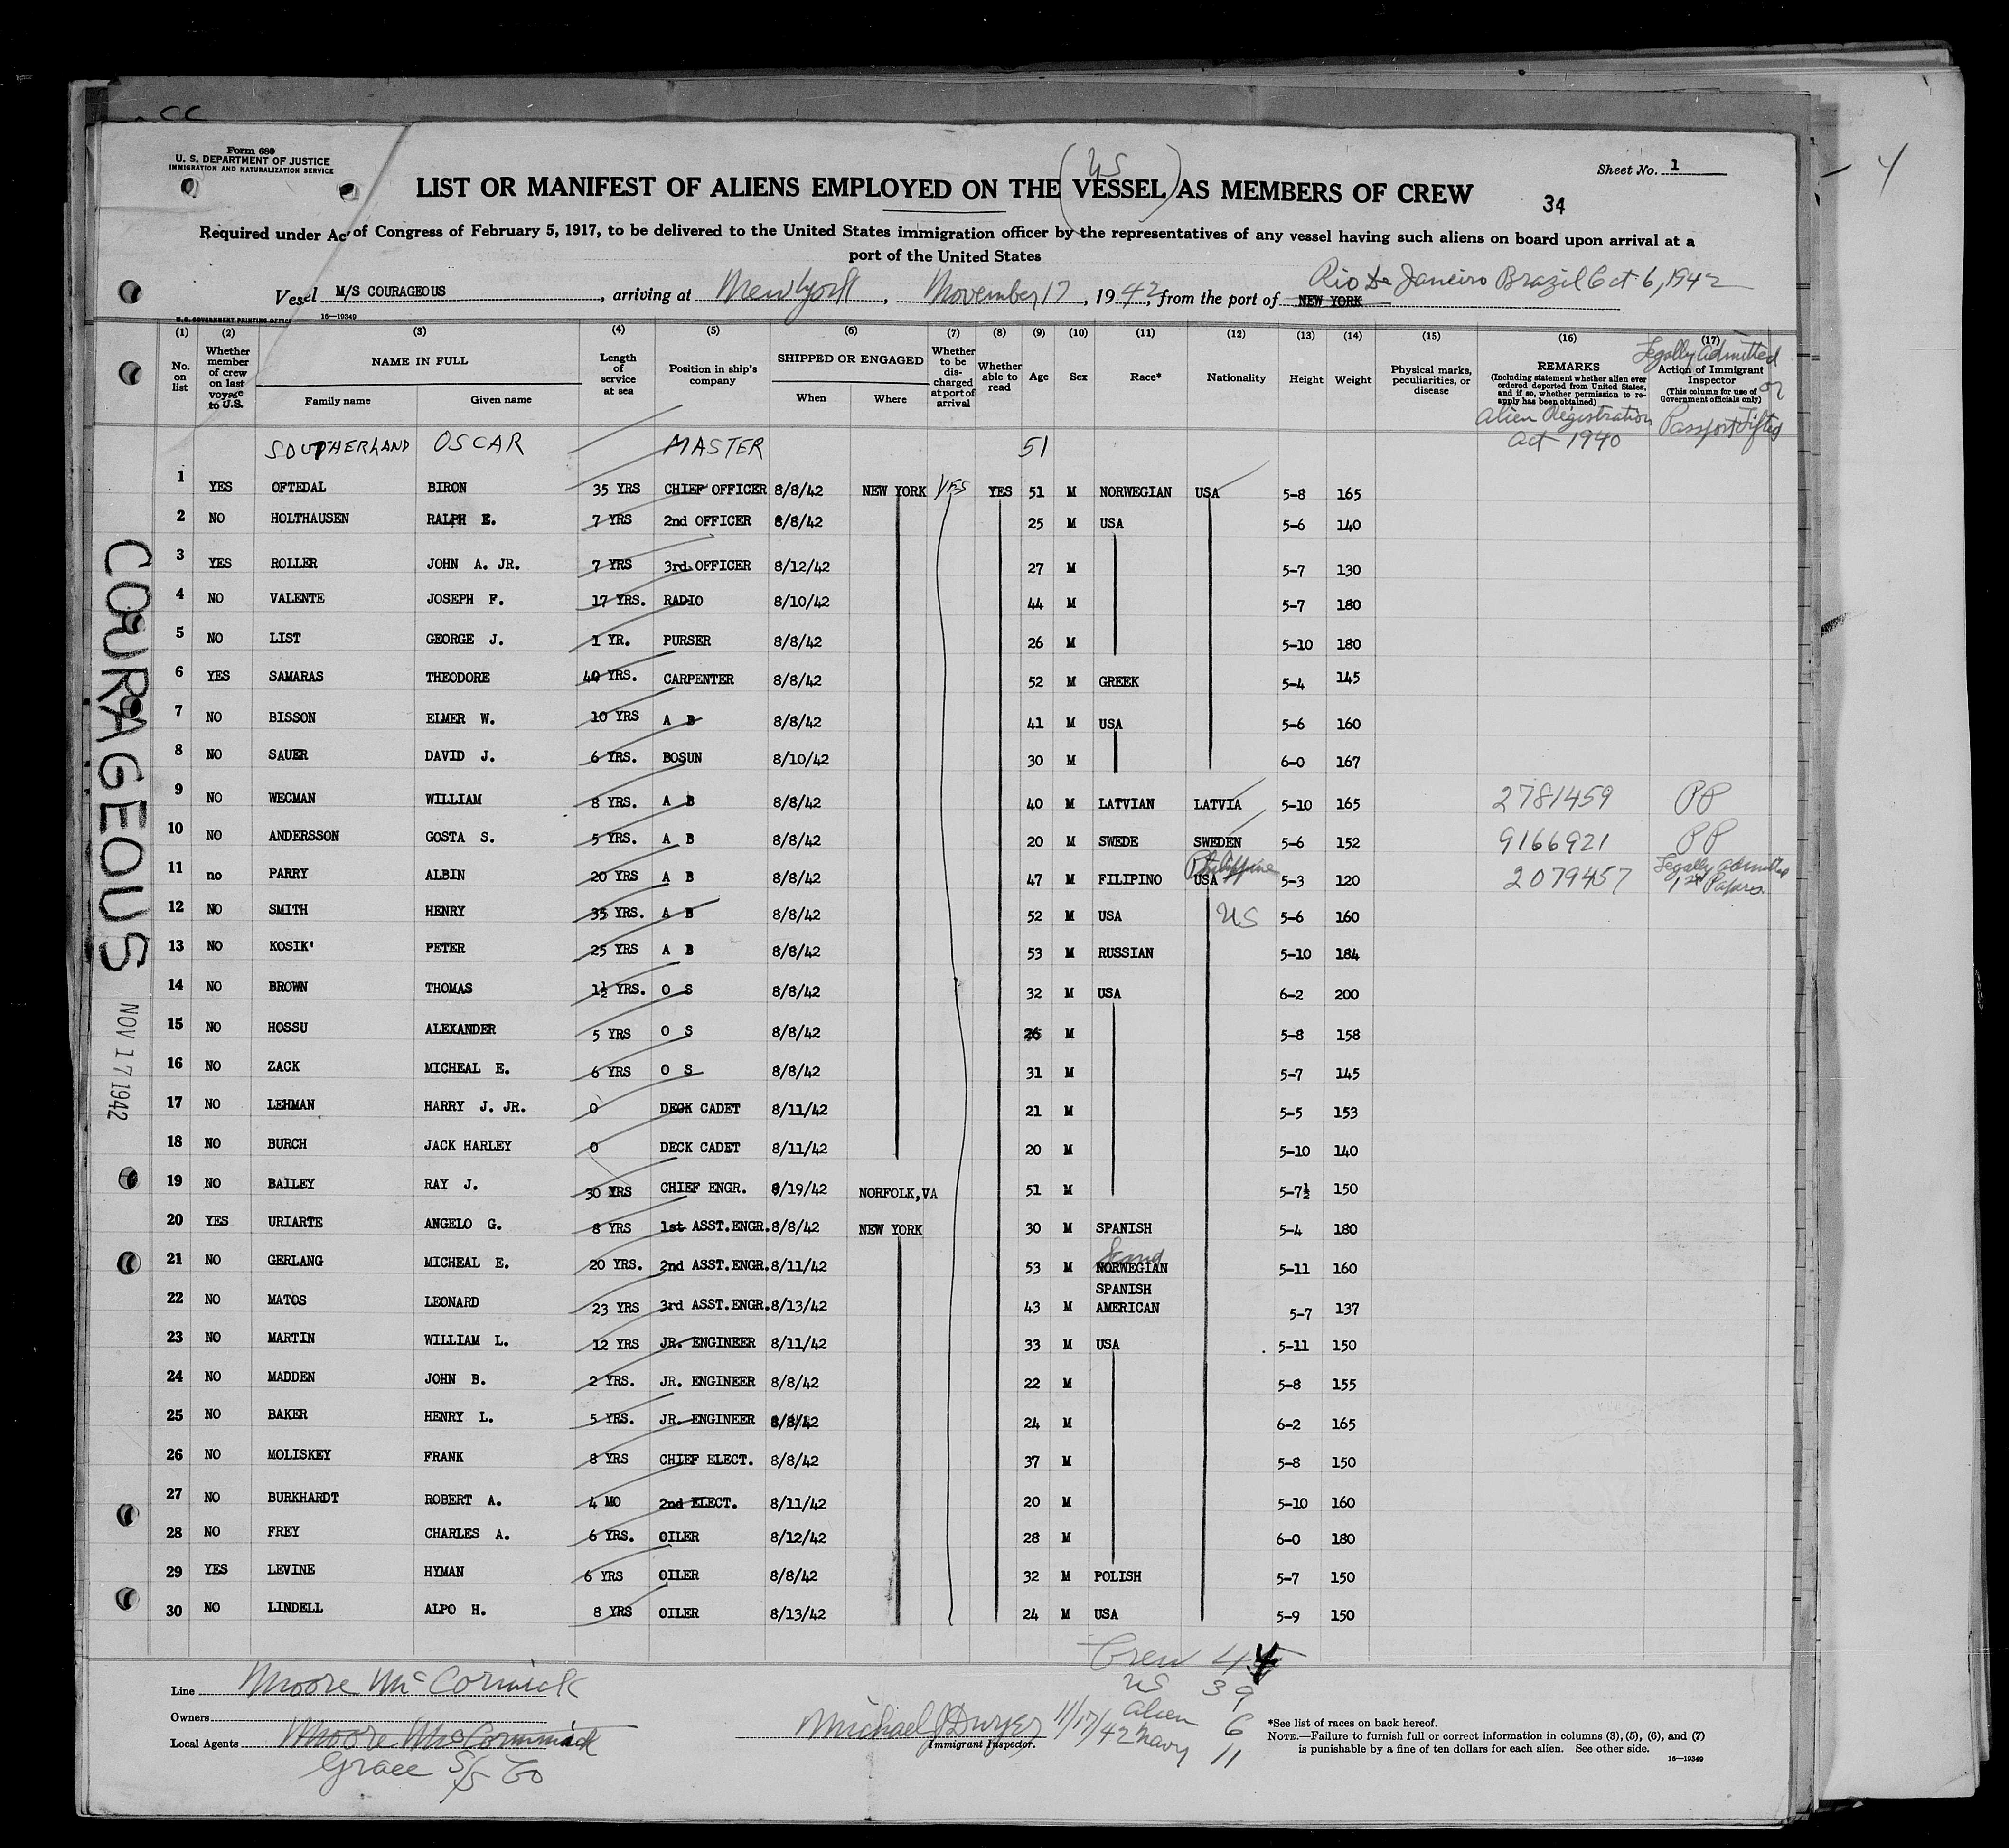 Form 680
U. S. DEPARTMENT OF JUSTICE
IMMIGRATION AND NATURALIZATION SERVICE
Sheet No. 1
4
US
LIST OR MANIFEST OF ALIENS EMPLOYED ON THE (VESSEL) AS MEMBERS OF CREW
34
Required under Act of Congress of February 5, 1917, to be delivered to the United States immigration officer by the representatives of any vessel having such aliens on board upon arrival at a
port of the United States
Vessel M/S COURAGEOUS, arriving at New York, November 17, 1942, from the port of NEW YORK Rio De Janeiro Brazil Oct 6, 1942
U.S. GOVERNMENT PRINTING OFFICE 16—19349
(1) (2) (3) (4) (5) (6) (7) (8) (9) (10) (11) (12) (13) (14) (15) (16) (17)
No. on list
Whether member of crew on last voyage to U.S.
NAME IN FULL
Family name Given name
Length of service at sea
Position in ship's company
SHIPPED OR ENGAGED
When Where
Whether to be discharged at port of arrival
Whether able to read
Age Sex Race* Nationality Height Weight
Physical marks, peculiarities, or disease
REMARKS
(Including statement whether alien ever ordered deported from United States, and if so, whether permission to reapply has been obtained)
Alien Registration Act 1940
Legally admitted or Passport Lifted
Action of Immigrant Inspector
(This column for use of Government officials only)
SOUTHERLAND OSCAR MASTER 51
1 YES OFTEDAL BIRON 35 YRS CHIEF OFFICER 8/8/42 NEW YORK YES YES 51 M NORWEGIAN USA 5-8 165
2 NO HOLTHAUSEN RALPH E. 7 YRS 2nd OFFICER 8/8/42 25 M USA 5-6 140
3 YES ROLLER JOHN A. JR. 7 YRS 3rd OFFICER 8/12/42 27 M 5-7 130
4 NO VALENTE JOSEPH F. 17 YRS. RADIO 8/10/42 44 M 5-7 180
5 NO LIST GEORGE J. 1 YR. PURSER 8/8/42 26 M 5-10 180
6 YES SAMARAS THEODORE 40 YRS. CARPENTER 8/8/42 52 M GREEK 5-4 145
7 NO BISSON ELMER W. 10 YRS A B 8/8/42 41 M USA 5-6 160
8 NO SAUER DAVID J. 6 YRS. BOSUN 8/10/42 30 M 6-0 167
9 NO WECMAN WILLIAM 8 YRS. A B 8/8/42 40 M LATVIAN LATVIA 5-10 165 2781459 PP
10 NO ANDERSSON GOSTA S. 5 YRS. A B 8/8/42 20 M SWEDE SWEDEN 5-6 152 9166921 PP
11 no PARRY ALBIN 20 YRS A B 8/8/42 47 M FILIPINO USA Philippine 5-3 120 2079457 Legally admitted 1st Papers.
12 NO SMITH HENRY 35 YRS. A B 8/8/42 52 M USA US 5-6 160
13 NO KOSIK' PETER 25 YRS A B 8/8/42 53 M RUSSIAN 5-10 184
14 NO BROWN THOMAS 1½ YRS. O S 8/8/42 32 M USA 6-2 200
15 NO HOSSU ALEXANDER 5 YRS O S 8/8/42 26 M 5-8 158
16 NO ZACK MICHEAL E. 6 YRS O S 8/8/42 31 M 5-7 145
17 NO LEHMAN HARRY J. JR. 0 DECK CADET 8/11/42 21 M 5-5 153
18 NO BURCH JACK HARLEY 0 DECK CADET 8/11/42 20 M 5-10 140
19 NO BAILEY RAY J. 30 YRS CHIEF ENGR. 8/19/42 NORFOLK,VA 51 M 5-7½ 150
20 YES URIARTE ANGELO G. 8 YRS 1st ASST.ENGR. 8/8/42 NEW YORK 30 M SPANISH 5-4 180
21 NO GERLANG MICHEAL E. 20 YRS. 2nd ASST.ENGR. 8/11/42 53 M NORWEGIAN Scand 5-11 160
22 NO MATOS LEONARD 23 YRS 3rd ASST.ENGR. 8/13/42 43 M SPANISH AMERICAN 5-7 137
23 NO MARTIN WILLIAM L. 12 YRS JR. ENGINEER 8/11/42 33 M USA 5-11 150
24 NO MADDEN JOHN B. 2 YRS. JR. ENGINEER 8/8/42 22 M 5-8 155
25 NO BAKER HENRY L. 5 YRS. JR. ENGINEER 8/8/42 24 M 6-2 165
26 NO MOLISKEY FRANK 8 YRS CHIEF ELECT. 8/8/42 37 M 5-8 150
27 NO BURKHARDT ROBERT A. 4 MO 2nd ELECT. 8/11/42 20 M 5-10 160
28 NO FREY CHARLES A. 6 YRS. OILER 8/12/42 28 M 6-0 180
29 YES LEVINE HYMAN 6 YRS OILER 8/8/42 32 M POLISH 5-7 150
30 NO LINDELL ALPO H. 8 YRS OILER 8/13/42 24 M USA 5-9 150
COURAGEOUS
NOV 17 1942
Crew 44
US 39
Alien 6
Navy 11
Line Moore McCormick
Owners
Local Agents Moore McCormick
Grace S/S Co
Michael J Dwyer 11/17/42
Immigrant Inspector.
*See list of races on back hereof.
NOTE.—Failure to furnish full or correct information in columns (3), (5), (6), and (7)
is punishable by a fine of ten dollars for each alien. See other side.
16—19349